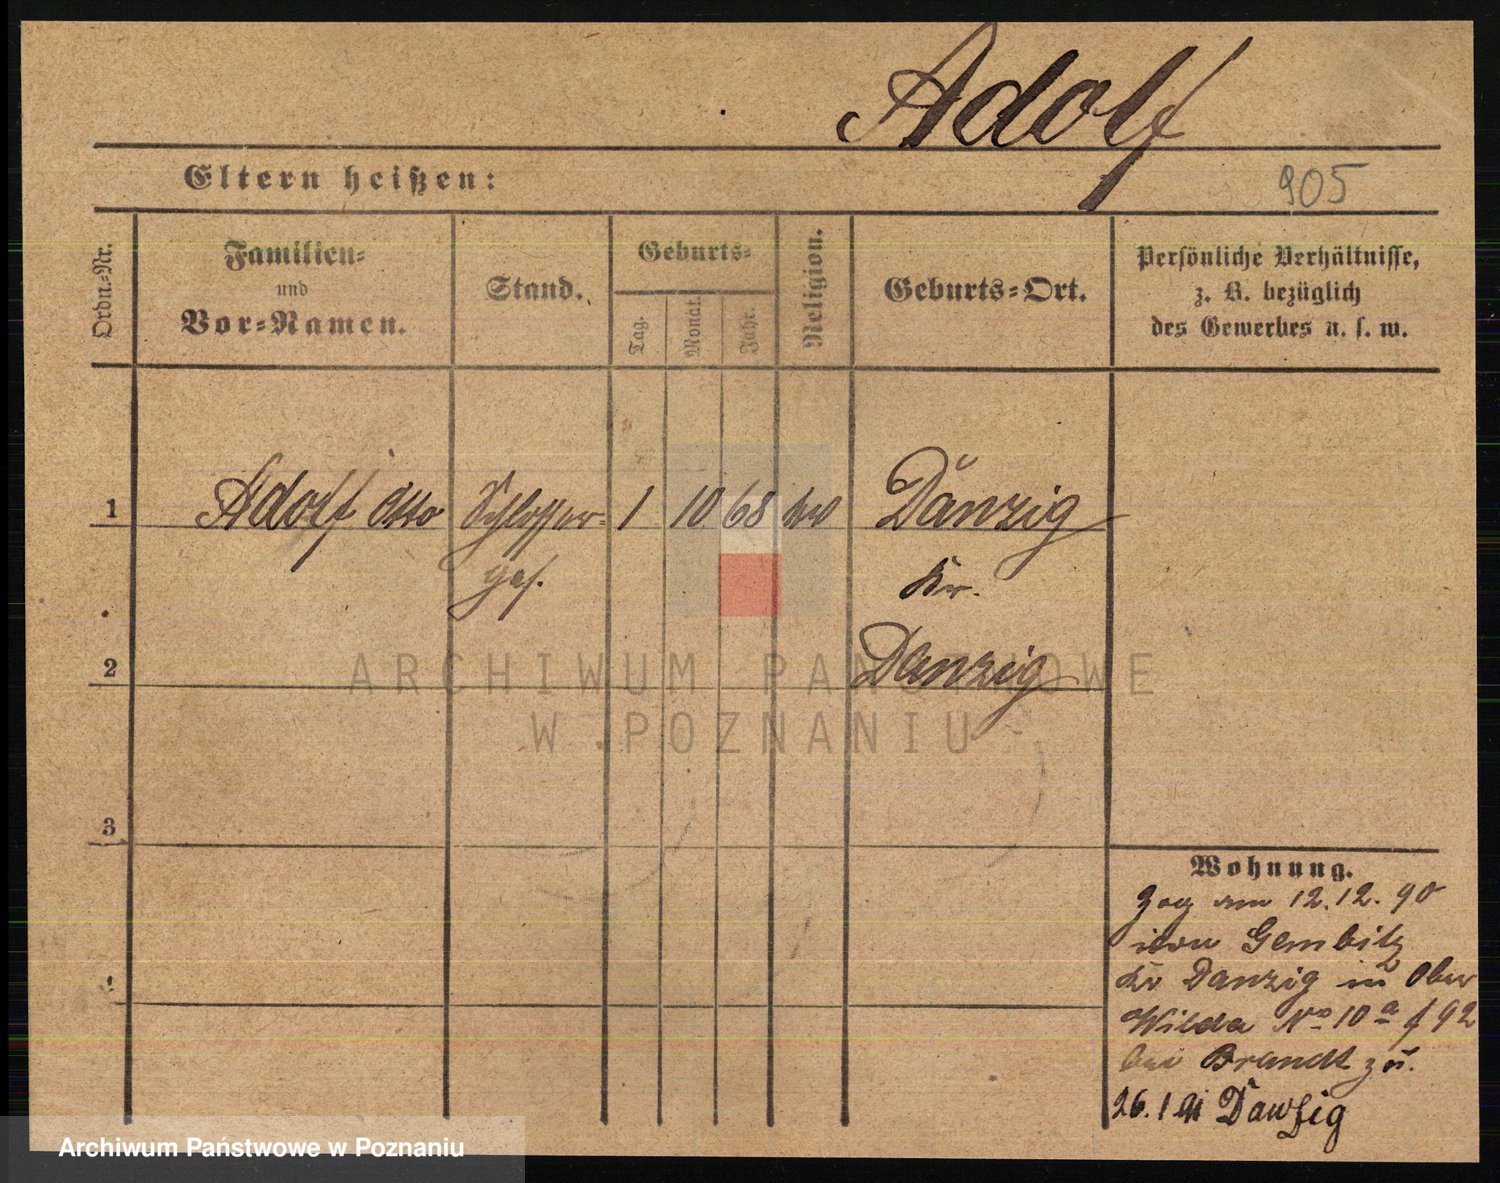 Adolf
Eltern heißen:
905
Ordn.-Nr.
Familien-
und
Vor-Namen.
Stand.
Geburts-
Tag.
Monat.
Jahr.
Religion.
Geburts-Ort.
Persönliche Verhältnisse,
z. B. bezüglich
des Gewerbes u. s. w.
1
Adolf Otto
Schlosser-
ges.
1
10
68
ev
Danzig
Kr.
Danzig
2
3
4
ARCHIWUM PAŃSTWOWE
W POZNANIU
Wohnung.
Zog am 12.12.90
von Gembitz
Kr Danzig in Ober
Wilda No 10 a f 92
bei Brandt zu.
26.1 91 Danzig
Archiwum Państwowe w Poznaniu